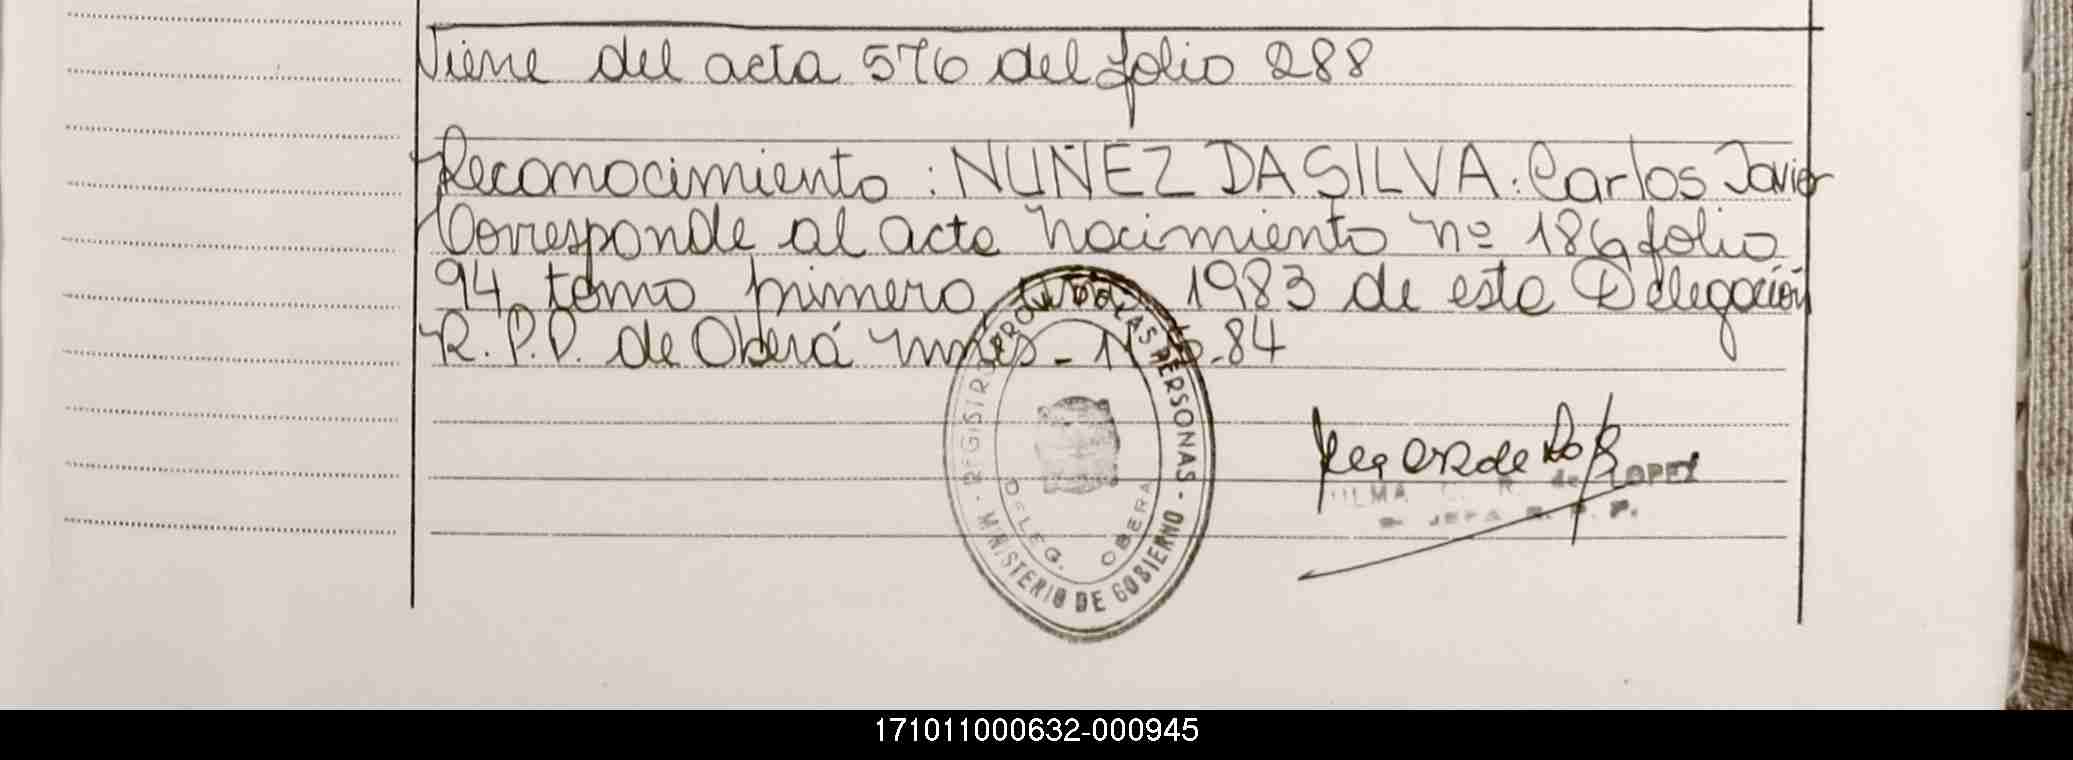 Viene del acta 576 del folio 288
Reconocimiento: NUÑEZ DA SILVA. Carlos Javier
Corresponde al acta nacimiento nº 186 folio
94 tomo primero 1983 de esta Delegación
R.P.P. de Oberá Mnes - 84
REGISTRO PROV. DE LAS PERSONAS - MINISTERIO DE GOBIERNO -
DELEG. OBERA
R. de LOPEZ
JEFA R. P. P.
171011000632-000945